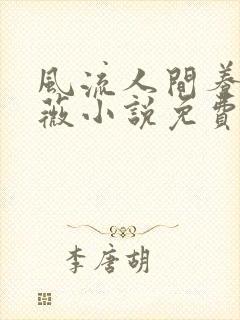 風流人間養
薇小說免費
李唐胡